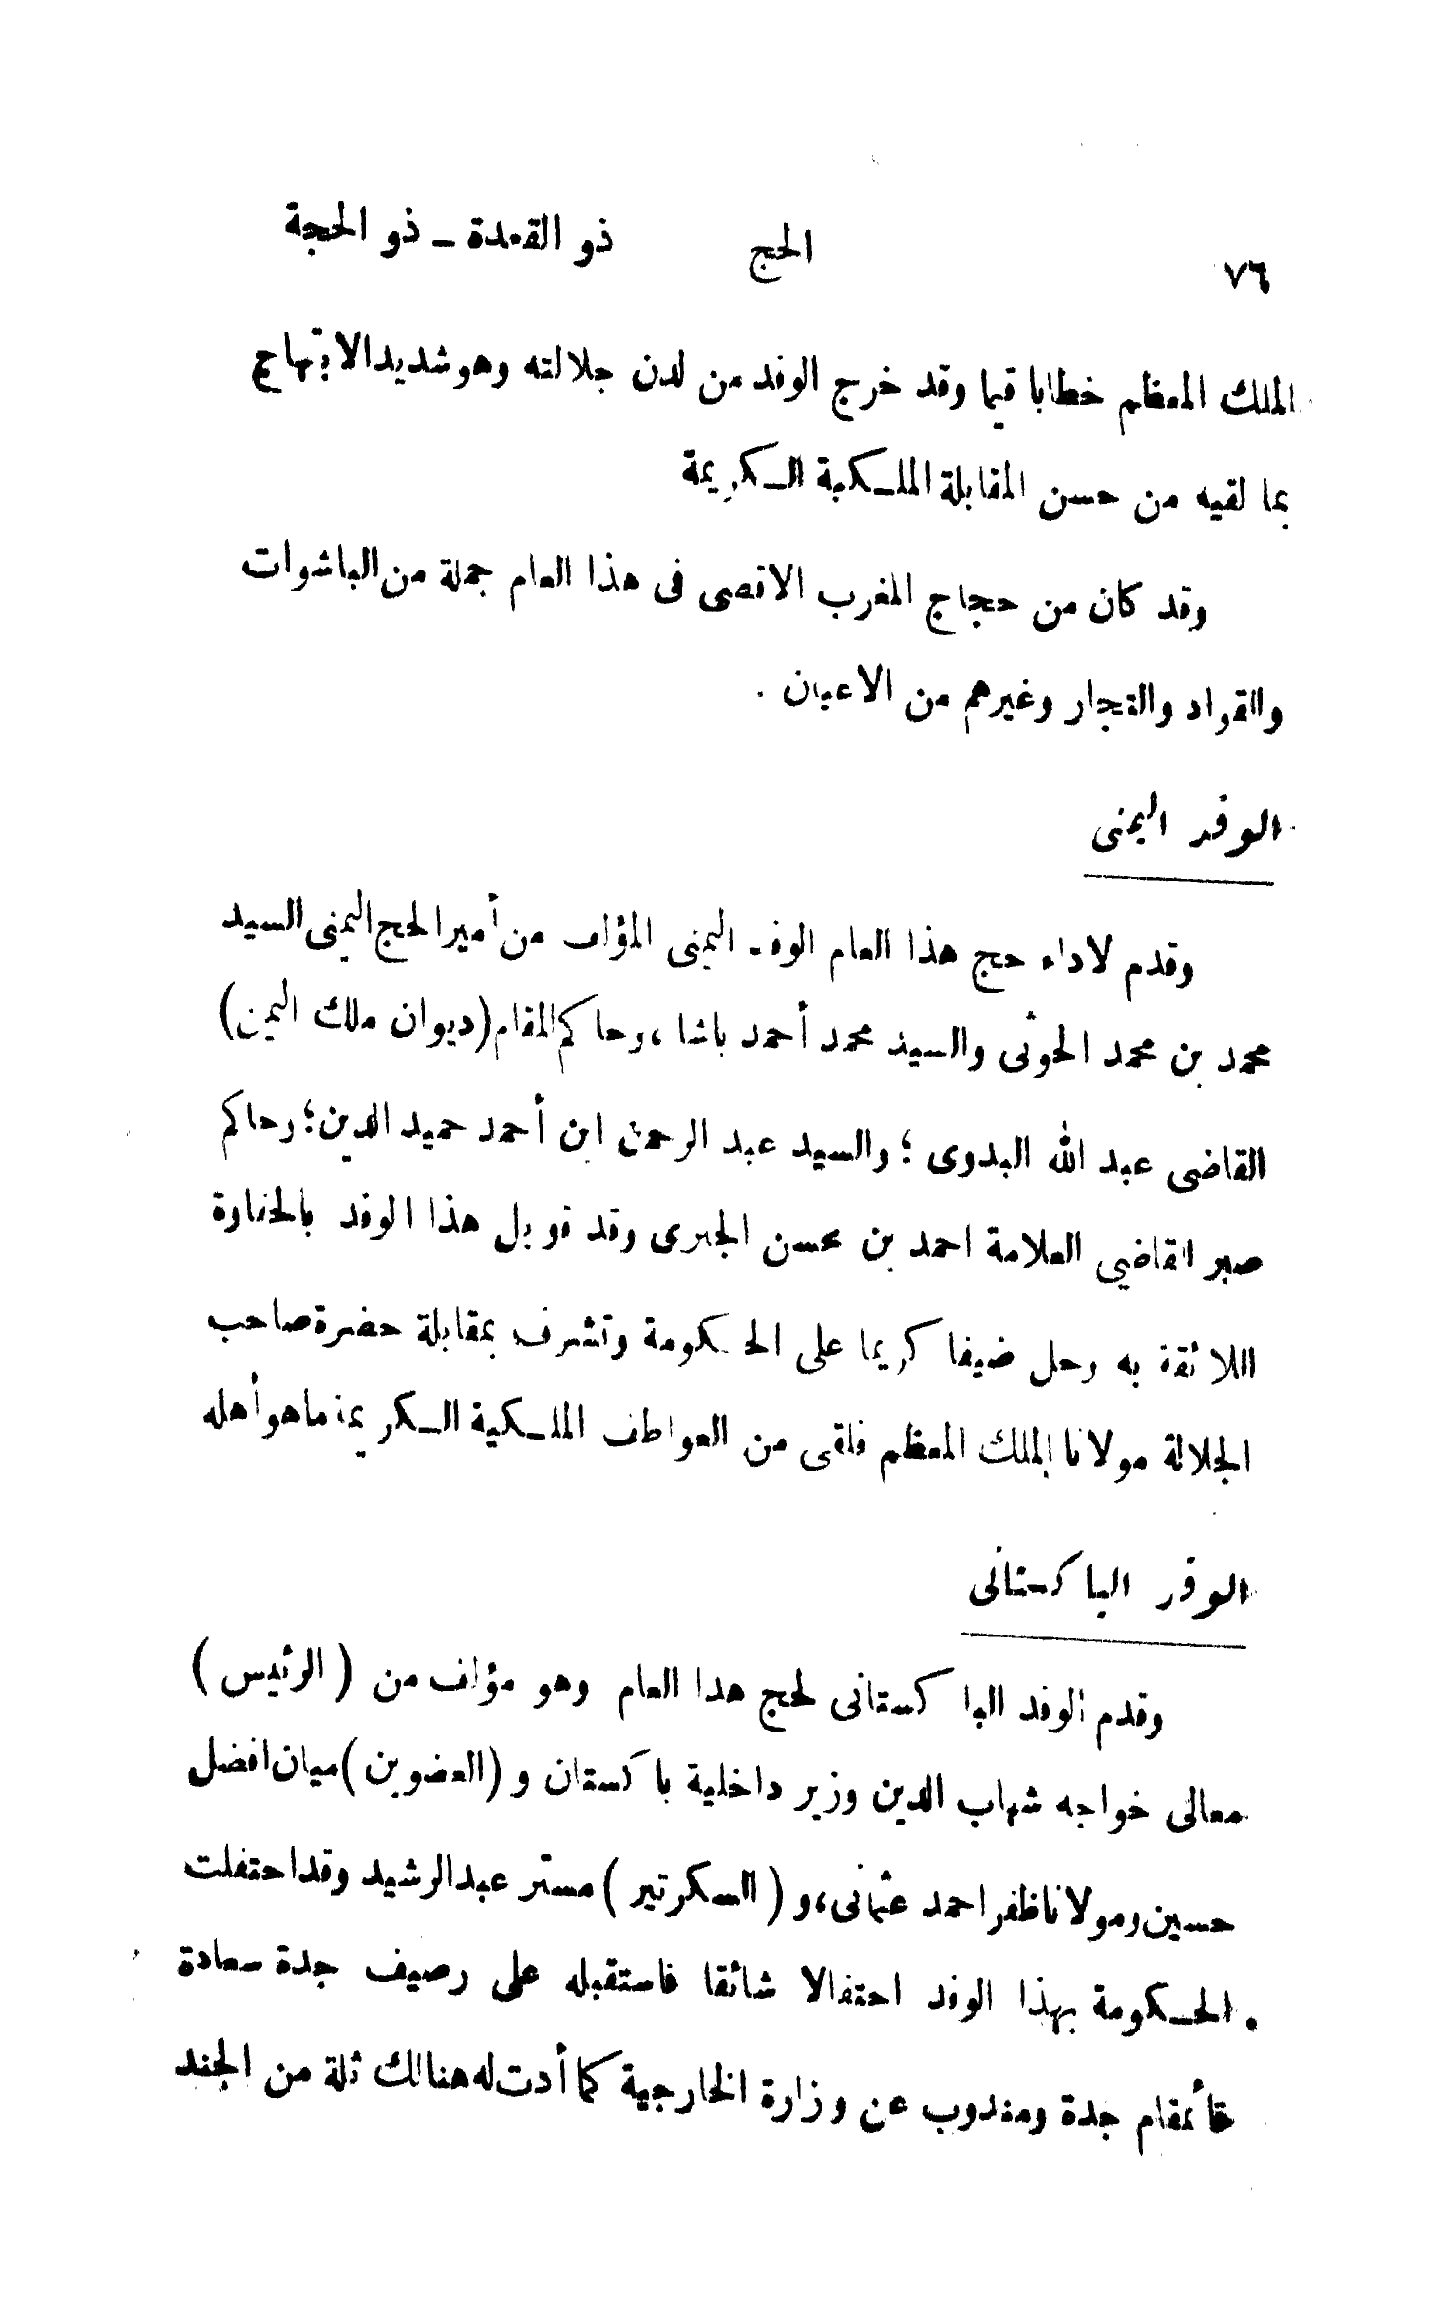 ٧٦ الحج ذو القعدة ـ ذو الحجة
الملك المعظم خطابا قيما وقد خرج الوفد من لدن جلالته وهو شديد الابتهاج
بما لقيه من حسن المقابلة الملكية الكريمة
وقد كان من حجاج المغرب الاقصى فى هذا العام جملة من الباشوات
والقواد والتجار وغيرهم من الاعيان .
الوفد اليمنى
وقدم لاداء حج هذا العام الوفد اليمنى المؤلف من أمير الحج اليمنى السيد
محمد بن محمد الحوثى والسيد محمد أحمد باشا ، وحاكم المقام (ديوان ملك اليمن)
القاضى عبد الله البدوى ؛ والسيد عبد الرحمن ابن أحمد حميد الدين ؛ وحاكم
صبر القاضي العلامة احمد بن محسن الجبرى وقد قوبل هذا الوفد بالحفاوة
اللائقة به وحل ضيفا كريما على الحكومة وتشرف بمقابلة حضرة صاحب
الجلالة مولانا الملك المعظم فلقى من العواطف الملكية الكريمة ما هو أهله
الوفد الباكستانى
وقدم الوفد الباكستانى لحج هذا العام وهو مؤلف من ( الرئيس )
معالى خواجه شهاب الدين وزير داخلية باكستان و (العضوين) ميان افضل
حسين ومولانا ظفر احمد عثمانى، و ( السكرتير ) مستر عبد الرشيد وقد احتفلت
الحكومة بهذا الوفد احتفالا شائقا فاستقبله على رصيف جدة سعادة
قائمقام جدة ومندوب عن وزارة الخارجية كما أدت له هنالك ثلة من الجند